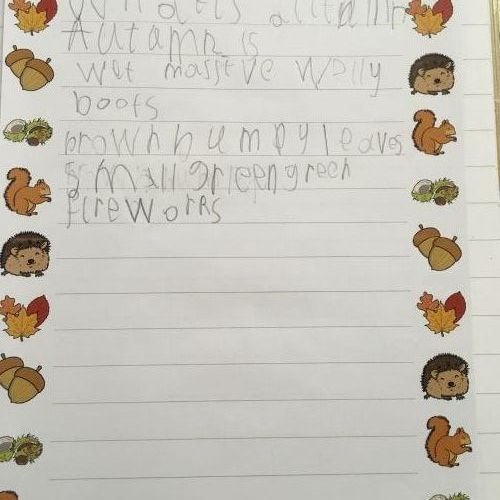 What is autamn
Autamn is
wet massive welly
boots
brown humpy leaves
small grieen green
fireworks